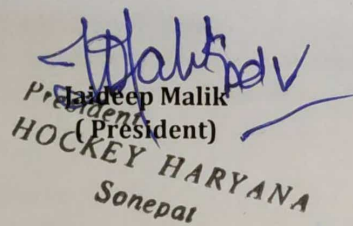 Jaideep Malik
( President)
President
HOCKEY HARYANA
Sonepat